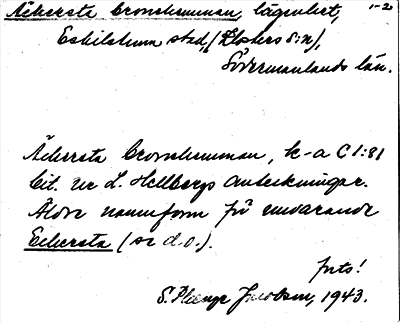 Äckersta Cronohemman, lägenhet, 1-2
Eskilstuna stad, (Klosters S:n),
Södermanlands län.
Äckersta Cronohemman, k-a C1:81
Cit. ur L. Hellbergs anteckningar.
Äldre namnform på nuvarande
Eckersta (se d.o.).
forts!
S. Jacobson, 1943.